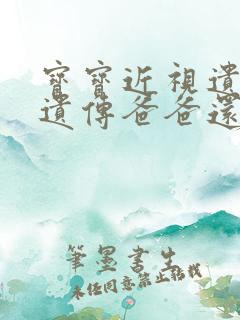 寶寶近視遺
遺傳爸爸還
筆墨書生
未經同意禁止轉載